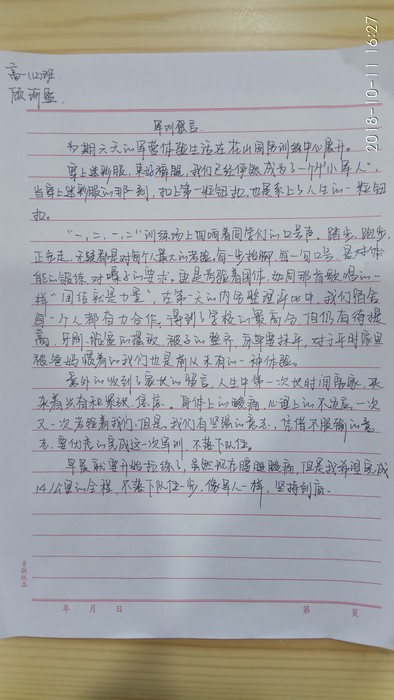 2018-10-11 16:27
高一(12)班
军训感言
为期六天的军营体验生活在花山国防训练中心展开。
穿上迷彩服,束好腰服,我们已经俨然成为了一个个“小军人”,
当穿上迷彩服的那一刻,扣上第一粒钮扣,也是系上了人生的一粒钮
扣。
“一,二,一,二”训练场上回响着同学们的口号声,踏步,跑步,
正步走,无疑都是对每个人最大的考验,每一步抬脚,每一句口号,是对体
能的锻炼,对嗓子的要求,更是考验着团体,如同那首歌唱的一
样“团结就是力量”,在第一天的内务整理评比中,我们宿舍
每一个人都有力合作,得到了学校的最高分,但仍有待提
高,牙刷,脸盆的摆放,被子的整齐,床单要抹平,对于平时家里
被爸妈惯着的我们也是前从未有的一种体验。
意外的收到了家长的留言,人生中第一次长时间离家,夹
杂着些有和紧张,焦虑。身体上的酸痛,心理上的不适应,一次
又一次考验着我们,但是,我们有坚强的意志,凭借不服输的意
志,要优秀的完成这一次军训,不落下队伍。
早晨就要开始拉练了,虽然现在腰酸腿痛,但是我希望完成
14公里的全程,不落下队伍一步,像军人一样,坚持到底。
年 月 日
第 页